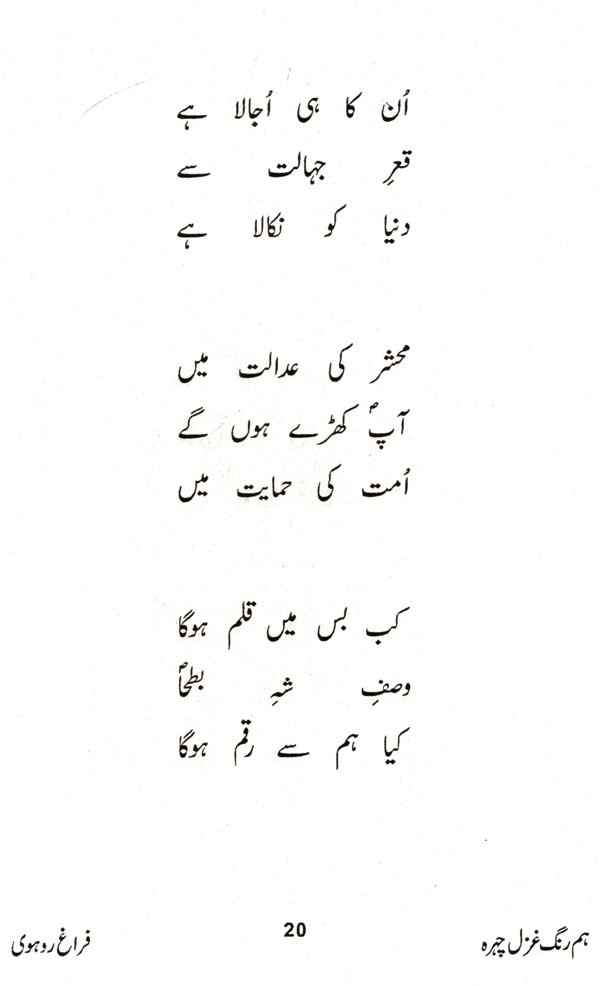 اُن کا ہی اُجالا ہے
قعرِ جہالت سے
دنیا کو نکالا ہے
محشر کی عدالت میں
آپؐ کھڑے ہوں گے
اُمت کی حمایت میں
کب بس میں قلم ہوگا
وصفِ شہِ بطحاؐ
کیا ہم سے رقم ہوگا
ہم رنگ غزل چہرہ 20 فراغ روہوی